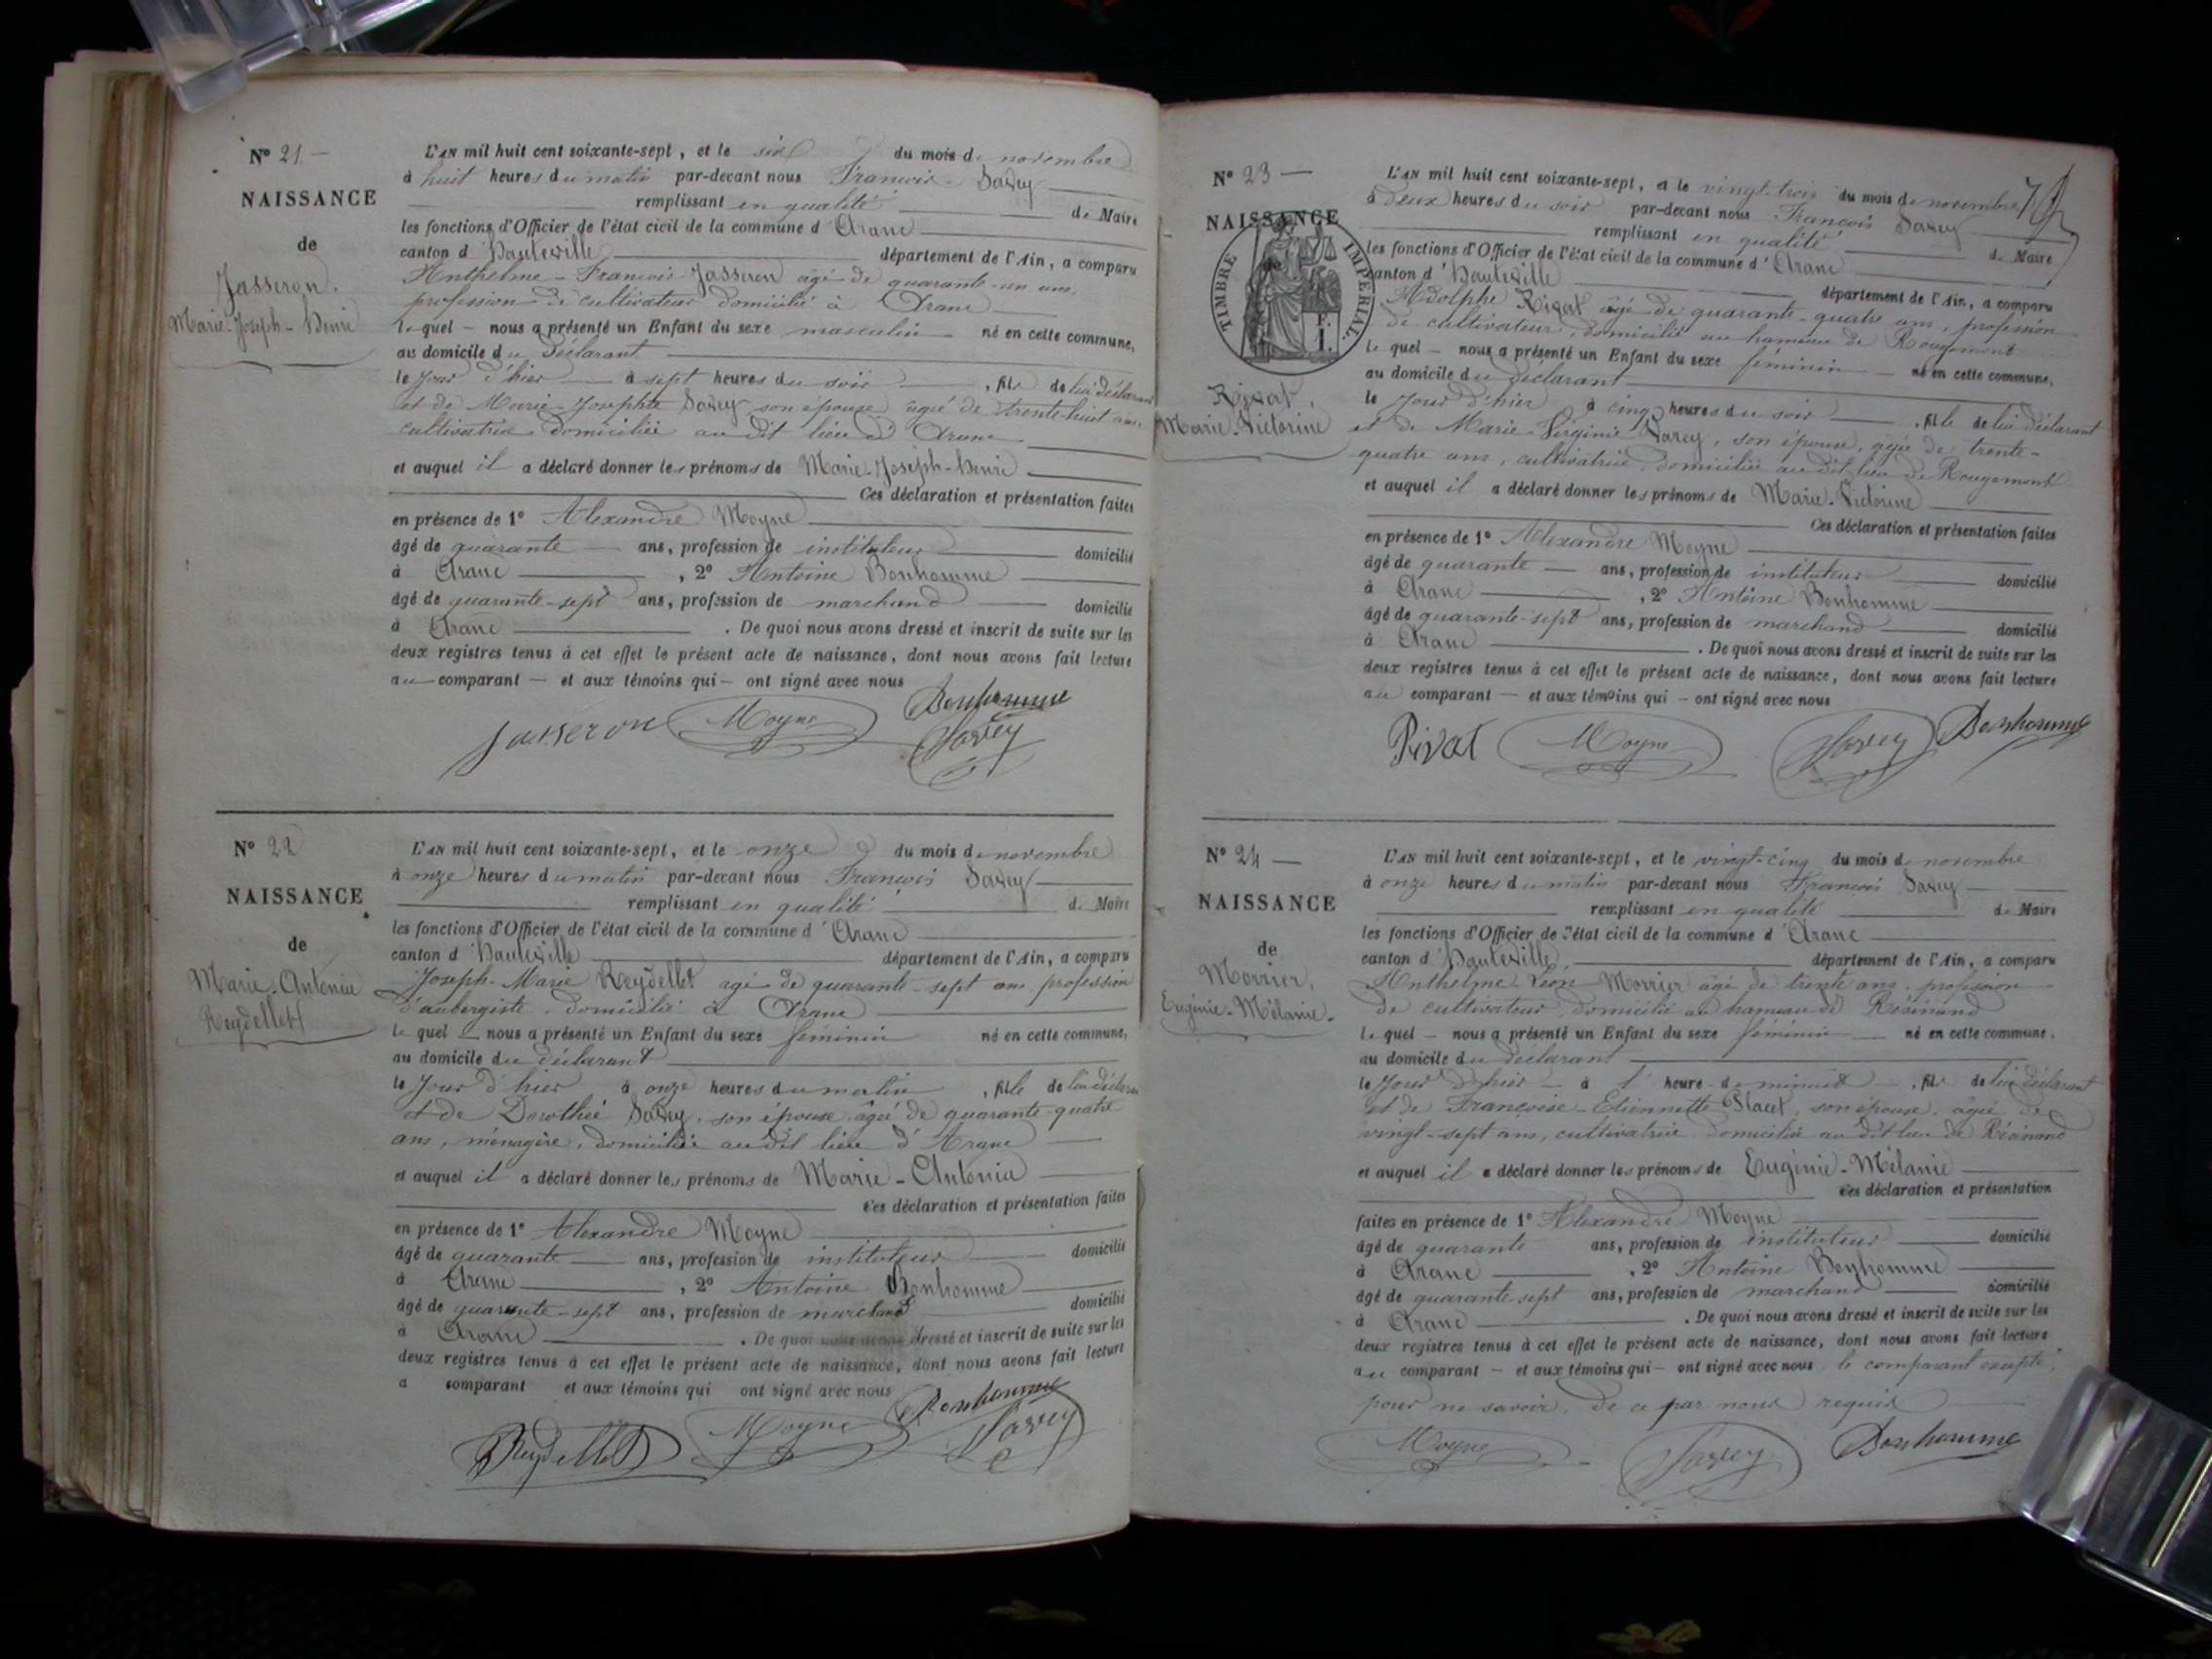 N° 21 —
NAISSANCE
de
Jasseron.
Marie-Joseph-Henri
L'AN mil huit cent soixante-sept, et le six du mois de novembre
à huit heures du matin par-devant nous François Savey
remplissant en qualité de Maire
les fonctions d'Officier de l'état civil de la commune d'Aranc
canton d'Hauteville département de l'Ain, a comparu
Anthelme-François Jasseron âgé de quarante-un ans,
profession de cultivateur domicilié à Aranc
lequel — nous a présenté un Enfant du sexe masculin né en cette commune,
au domicile du déclarant
le jour d'hier à sept heures du soir, fils de lui déclarant
et de Marie-Josephte Savey son épouse âgée de trente-huit ans
cultivatrice domiciliée au dit lieu d'Aranc
et auquel il a déclaré donner les prénoms de Marie-Joseph-Henri
Ces déclaration et présentation faites
en présence de 1° Alexandre Moyne
âgé de quarante — ans, profession de instituteur domicilié
à Aranc, 2° Antoine Bonhomme
âgé de quarante-sept ans, profession de marchand domicilié
à Aranc. De quoi nous avons dressé et inscrit de suite sur les
deux registres tenus à cet effet le présent acte de naissance, dont nous avons fait lecture
au comparant — et aux témoins qui — ont signé avec nous
Jasseron Moyne Bonhomme
Savey
N° 22
NAISSANCE
de
Marie-Antonia
Reydellet
L'AN mil huit cent soixante-sept, et le onze du mois de novembre
à onze heures du matin par-devant nous François Savey
remplissant en qualité de Maire
les fonctions d'Officier de l'état civil de la commune d'Aranc
canton d'Hauteville département de l'Ain, a comparu
Joseph-Marie Reydellet âgé de quarante-sept ans, profession
d'aubergiste, domicilié à Aranc
lequel — nous a présenté un Enfant du sexe féminin né en cette commune,
au domicile du déclarant
le jour d'hier à onze heures du matin, fille de lui déclarant
et de Dorothée Savey, son épouse, âgée de quarante-quatre
ans, ménagère, domiciliée au dit lieu d'Aranc
et auquel il a déclaré donner les prénoms de Marie-Antonia
Ces déclaration et présentation faites
en présence de 1° Alexandre Moyne
âgé de quarante — ans, profession de instituteur domicilié
à Aranc, 2° Antoine Bonhomme
âgé de quarante-sept ans, profession de marchand domicilié
à Aranc. De quoi nous avons dressé et inscrit de suite sur les
deux registres tenus à cet effet le présent acte de naissance, dont nous avons fait lecture
a comparant et aux témoins qui ont signé avec nous
Reydellet Moyne Bonhomme
Savey
N° 23 —
NAISSANCE
TIMBRE IMPÉRIAL
Rivat,
Marie-Victorine
L'AN mil huit cent soixante-sept, et le vingt-trois du mois de novembre
à deux heures du soir par-devant nous François Savey
remplissant en qualité de Maire
les fonctions d'Officier de l'état civil de la commune d'Aranc
canton d'Hauteville département de l'Ain, a comparu
Adolphe Rivat âgé de quarante-quatre ans, profession
de cultivateur, domicilié au hameau de Rougemont
lequel — nous a présenté un Enfant du sexe féminin né en cette commune,
au domicile du déclarant
le jour d'hier à cinq heures du soir, fille de lui déclarant
et de Marie-Virginie Savey, son épouse, âgée de trente-
quatre ans, cultivatrice, domiciliée au dit lieu de Rougemont
et auquel il a déclaré donner les prénoms de Marie-Victorine
Ces déclaration et présentation faites
en présence de 1° Alexandre Moyne
âgé de quarante — ans, profession de instituteur domicilié
à Aranc, 2° Antoine Bonhomme
âgé de quarante-sept ans, profession de marchand domicilié
à Aranc. De quoi nous avons dressé et inscrit de suite sur les
deux registres tenus à cet effet le présent acte de naissance, dont nous avons fait lecture
au comparant — et aux témoins qui — ont signé avec nous
Rivat Moyne Savey Bonhomme
N° 24 —
NAISSANCE
de
Morrier,
Eugénie-Mélanie.
L'AN mil huit cent soixante-sept, et le vingt-cinq du mois de novembre
à onze heures du matin par-devant nous François Savey
remplissant en qualité de Maire
les fonctions d'Officier de l'état civil de la commune d'Aranc
canton d'Hauteville département de l'Ain, a comparu
Anthelme-Léon Morrier âgé de trente ans, profession
de cultivateur, domicilié au hameau de Résinand
lequel — nous a présenté un Enfant du sexe féminin — né en cette commune,
au domicile du déclarant
le jour d'hier — à l'heure de minuit, fille de lui déclarant
et de Françoise-Etiennette, son épouse, âgée de
vingt-sept ans, cultivatrice domiciliée au dit lieu de Résinand
et auquel il a déclaré donner les prénoms de Eugénie-Mélanie
Ces déclaration et présentation
faites en présence de 1° Alexandre Moyne
âgé de quarante ans, profession de instituteur domicilié
à Aranc, 2° Antoine Bonhomme
âgé de quarante-sept ans, profession de marchand domicilié
à Aranc. De quoi nous avons dressé et inscrit de suite sur les
deux registres tenus à cet effet le présent acte de naissance, dont nous avons fait lecture
au comparant — et aux témoins qui — ont signé avec nous, le comparant excepté,
pour ne savoir, de ce par nous requis
Moyne Savey Bonhomme